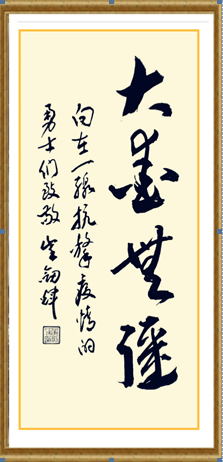 大愛無疆
向在一線抗擊疫情的
勇士们致敬